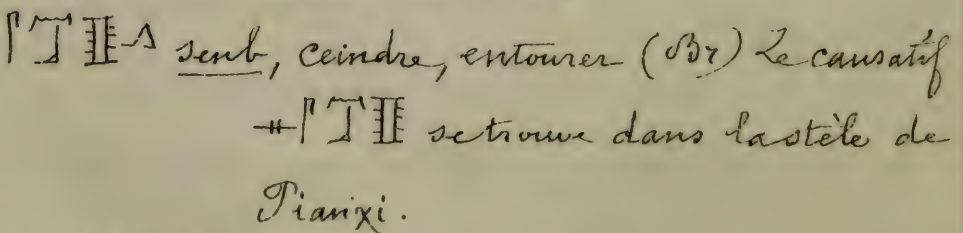 senb, ceindre, entourer (Br) Le causatif
se trouve dans la stèle de
Pianχi.